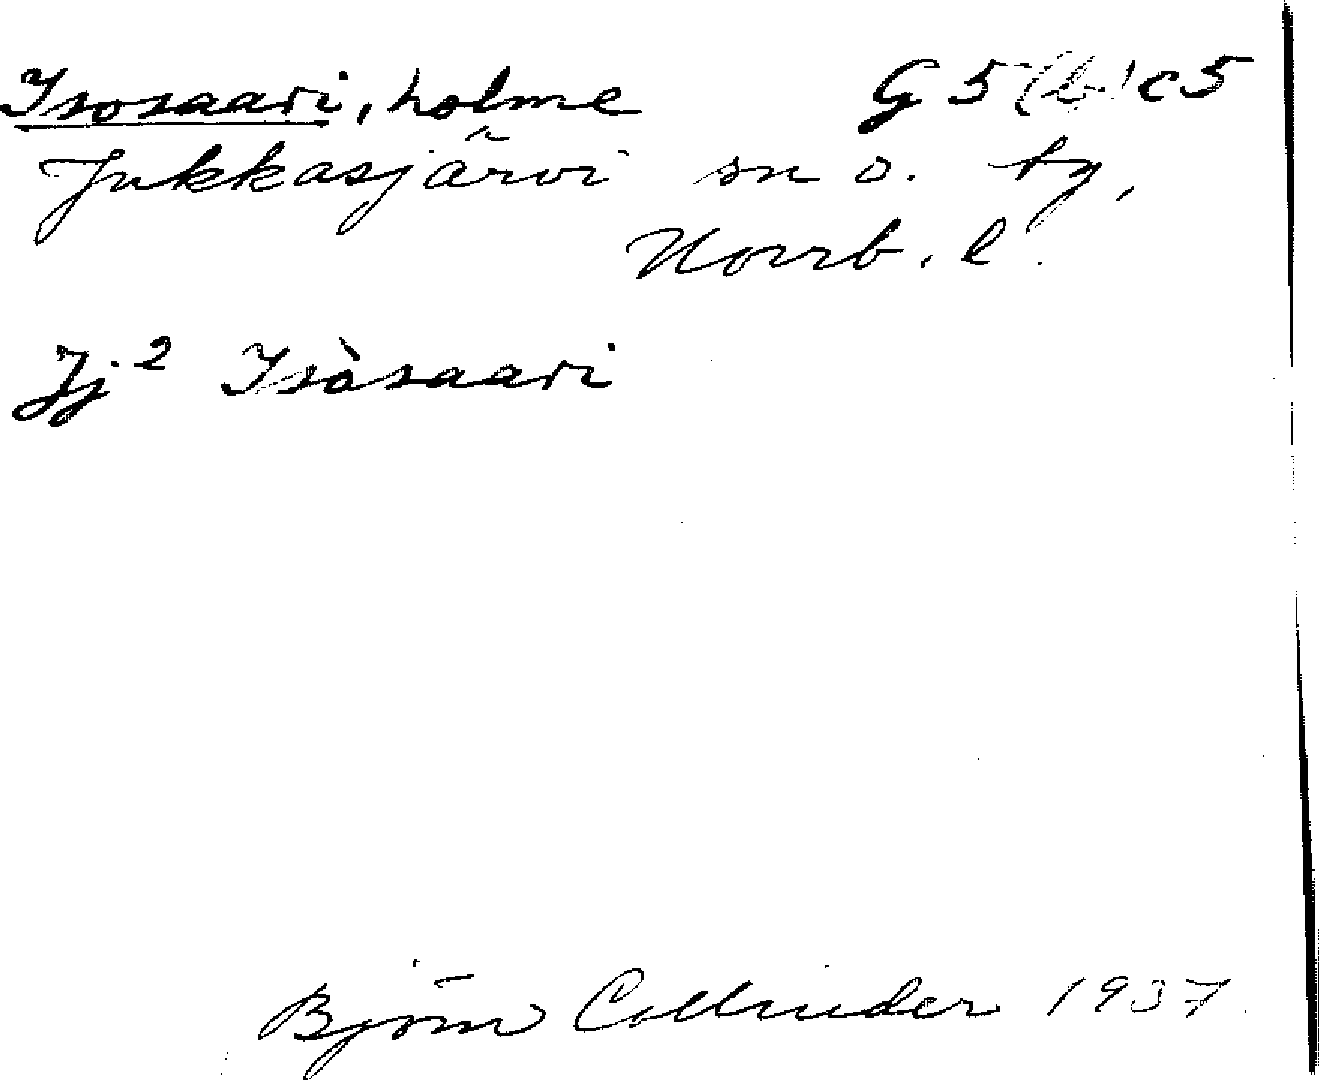 Isosaari, holme G 5 (b) c 5
Jukkasjärvi sn o. tg,
Norrb. l.
Jj 2 Isòsaari
Björn Collinder 1937